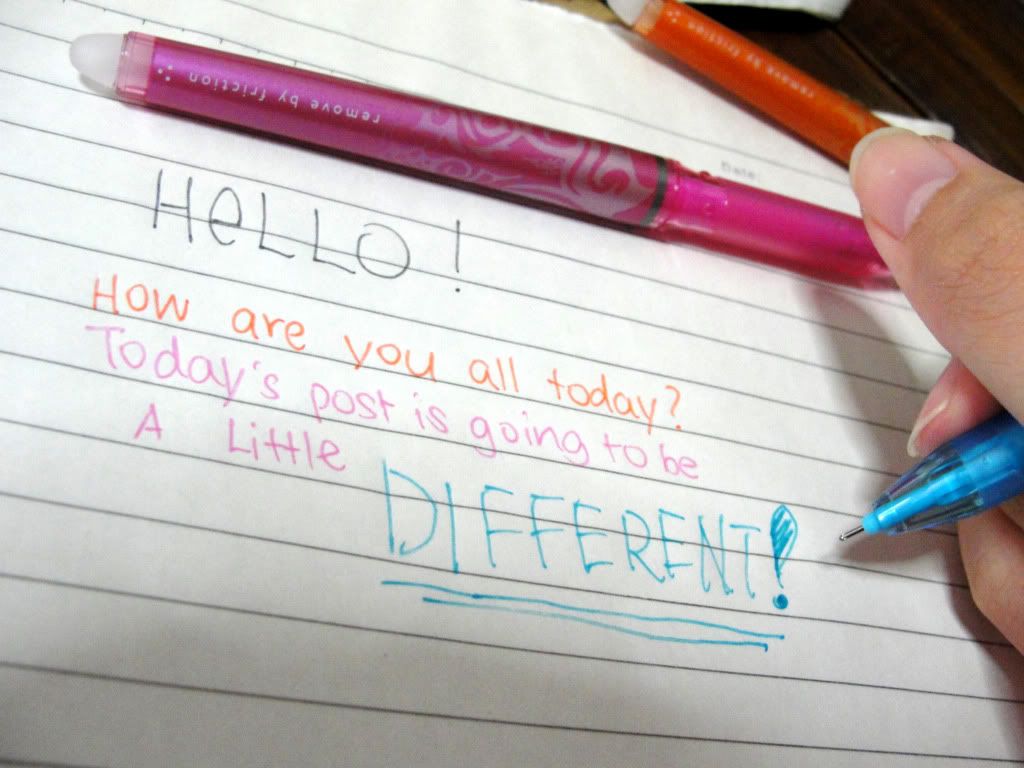 remove by friction
remove by friction
Date:
HeLLO!
How are you all today?
Today's post is going to be
A Little
DIFFERENT!